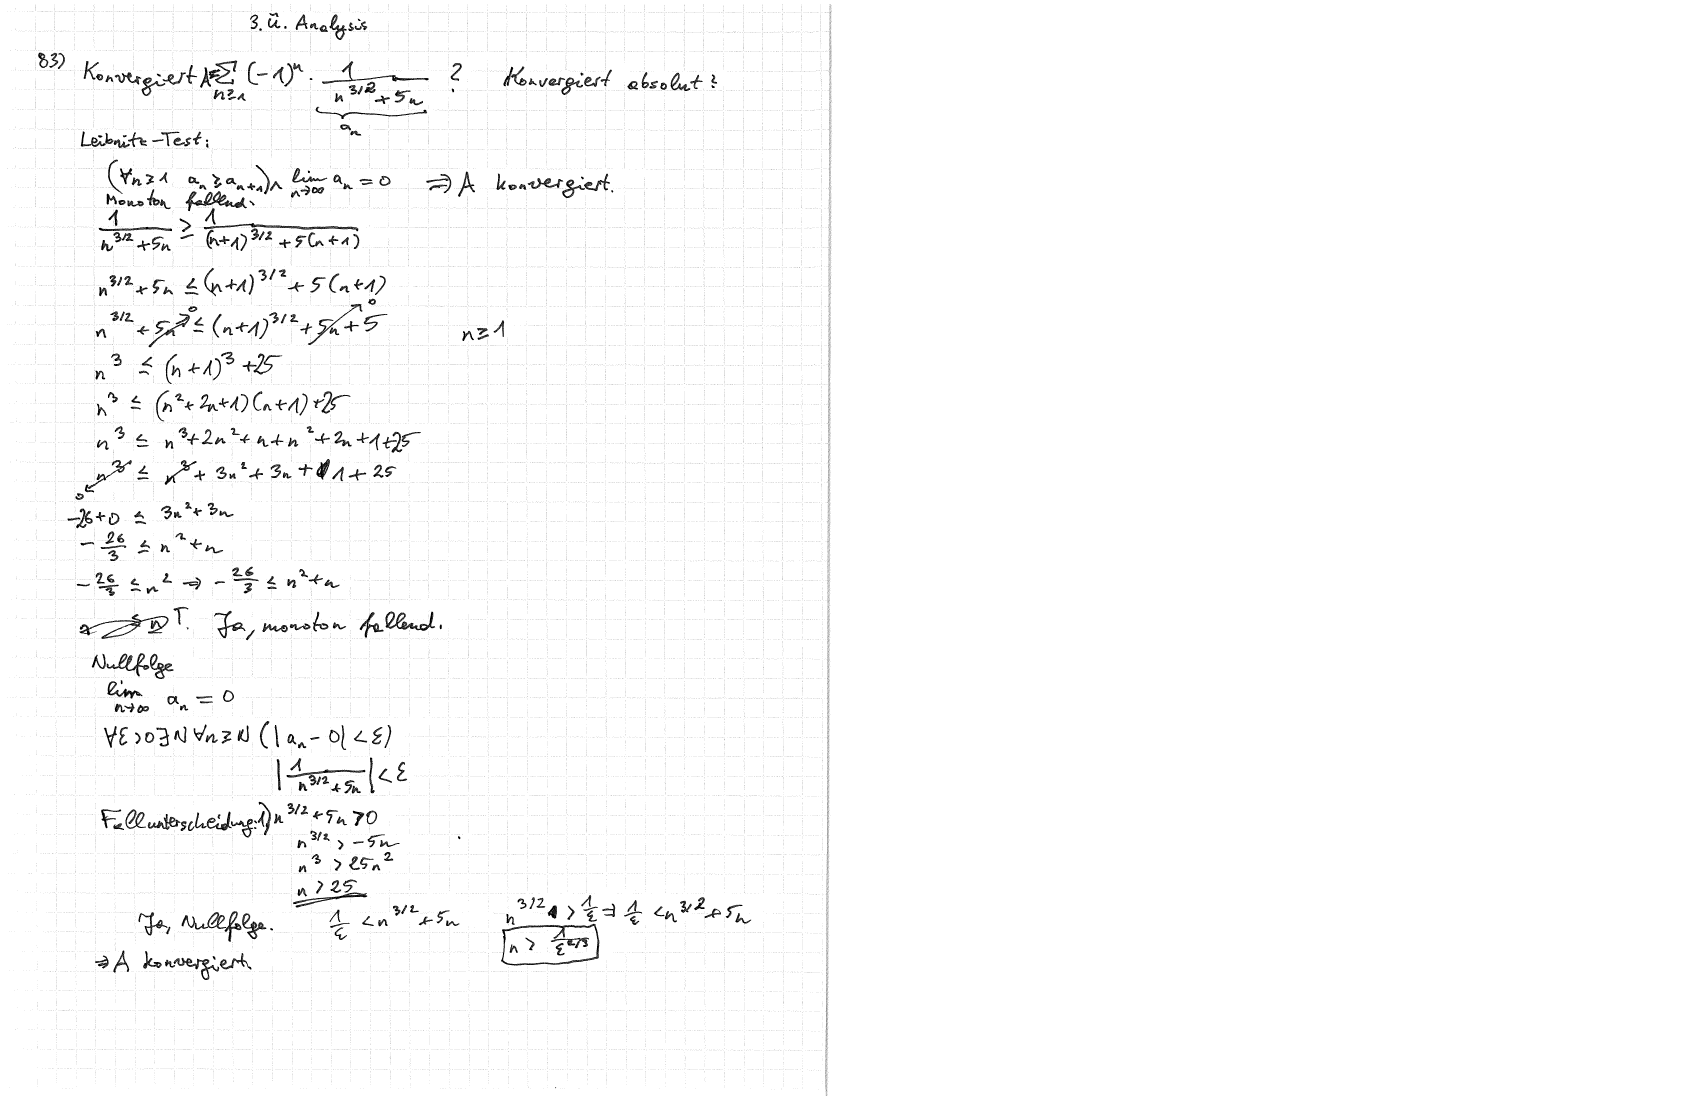 3. Ü. Analysis
83) Konvergiert A=∑_{n≥1} (-1)^n · 1/(n^{3/2}+5n) ? Konvergiert absolut?
a_n
Leibnitz-Test:
(∀n≥1 a_n ≥ a_{n+1}) ∧ lim_{n→∞} a_n = 0 ⇒ A konvergiert.
Monoton fallend:
1/(n^{3/2}+5n) ≥ 1/((n+1)^{3/2}+5(n+1))
n^{3/2}+5n ≤ (n+1)^{3/2}+5(n+1)
n^{3/2}+5n ≤ (n+1)^{3/2}+5n+5 n≥1
n^3 ≤ (n+1)^3+25
n^3 ≤ (n^2+2n+1)(n+1)+25
n^3 ≤ n^3+2n^2+n+n^2+2n+1+25
n^3 ≤ n^3+3n^2+3n+1+25
-26+0 ≤ 3n^2+3n
-26/3 ≤ n^2+n
-26/3 ≤ n^2 ⇒ -26/3 ≤ n^2+n
T. Ja, monoton fallend.
Nullfolge
lim_{n→∞} a_n = 0
∀ε>0∃N∀n≥N (|a_n-0|<ε)
|1/(n^{3/2}+5n)|<ε
Fallunterscheidung: 1) n^{3/2}+5n>0
n^{3/2} > -5n
n^3 > 25n^2
n > 25
Ja, Nullfolge. 1/ε < n^{3/2}+5n n^{3/2} > 1/ε ⇒ 1/ε < n^{3/2}+5n
n > 1/ε^{2/3}
⇒ A konvergiert.